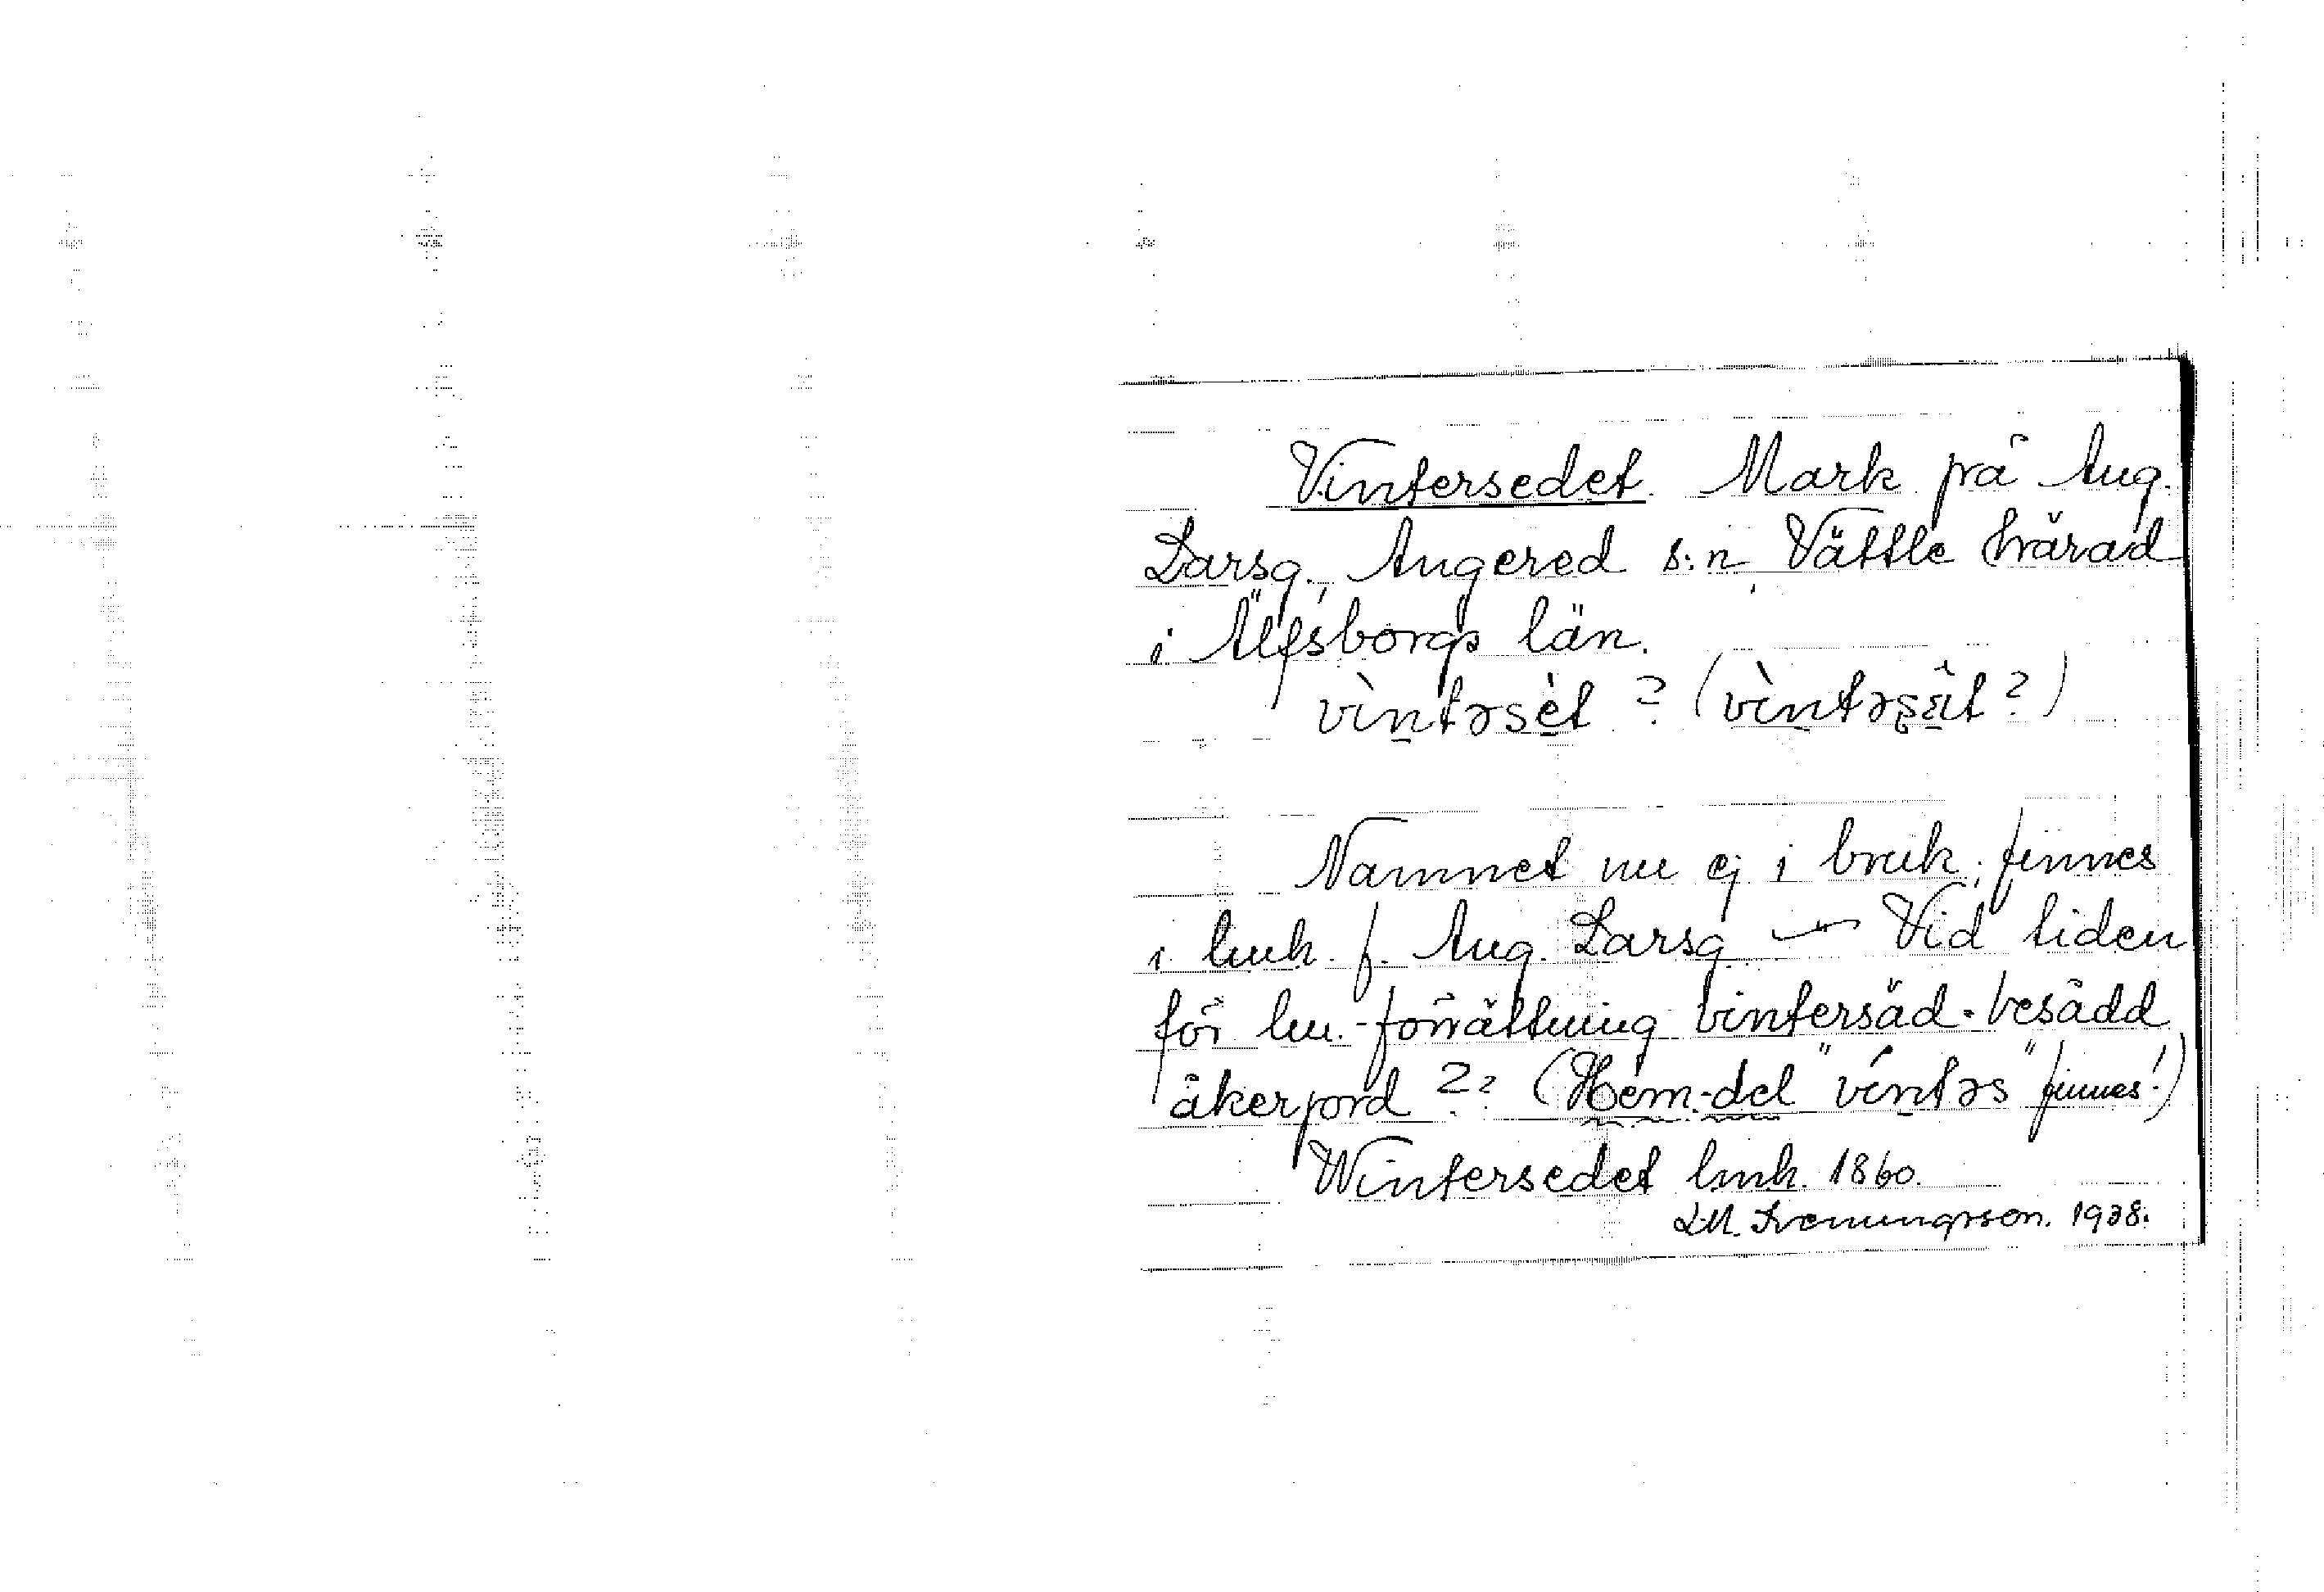 Vintersedet. Mark på Aug.
Larsg., Angered s:n, Vättle härad
i Älfsborgs län.
vìntəsèt ? (vìntəsät ?)
Namnet nu ej i bruk; finnes
i lmk. f. Aug. Larsg. — Vid tiden
för lm.-förrättning vintersäd-besådd
åkerjord ?? (Hem.-del "víntəs" finnes!)
Wintersedet lmk. 1860.
1938.